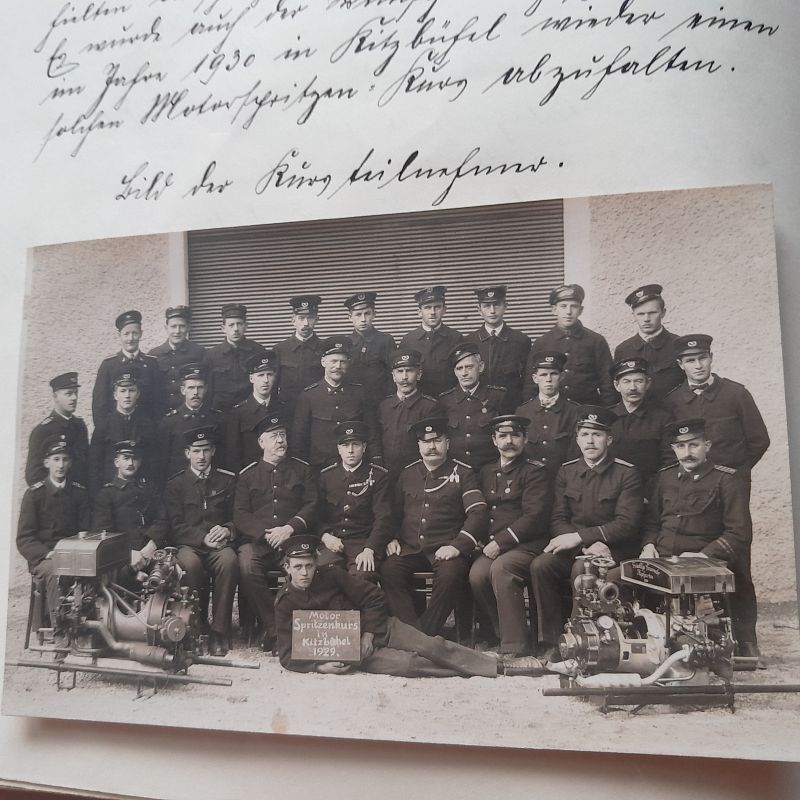 Es wurde auch der Wunsch
im Jahre 1930 in Kitzbühel wieder einen
solchen Motorspritzen-Kurs abzuhalten.
Bild der Kursteilnehmer.
Motor
Spritzenkurs
in
Kitzbühel
1929.